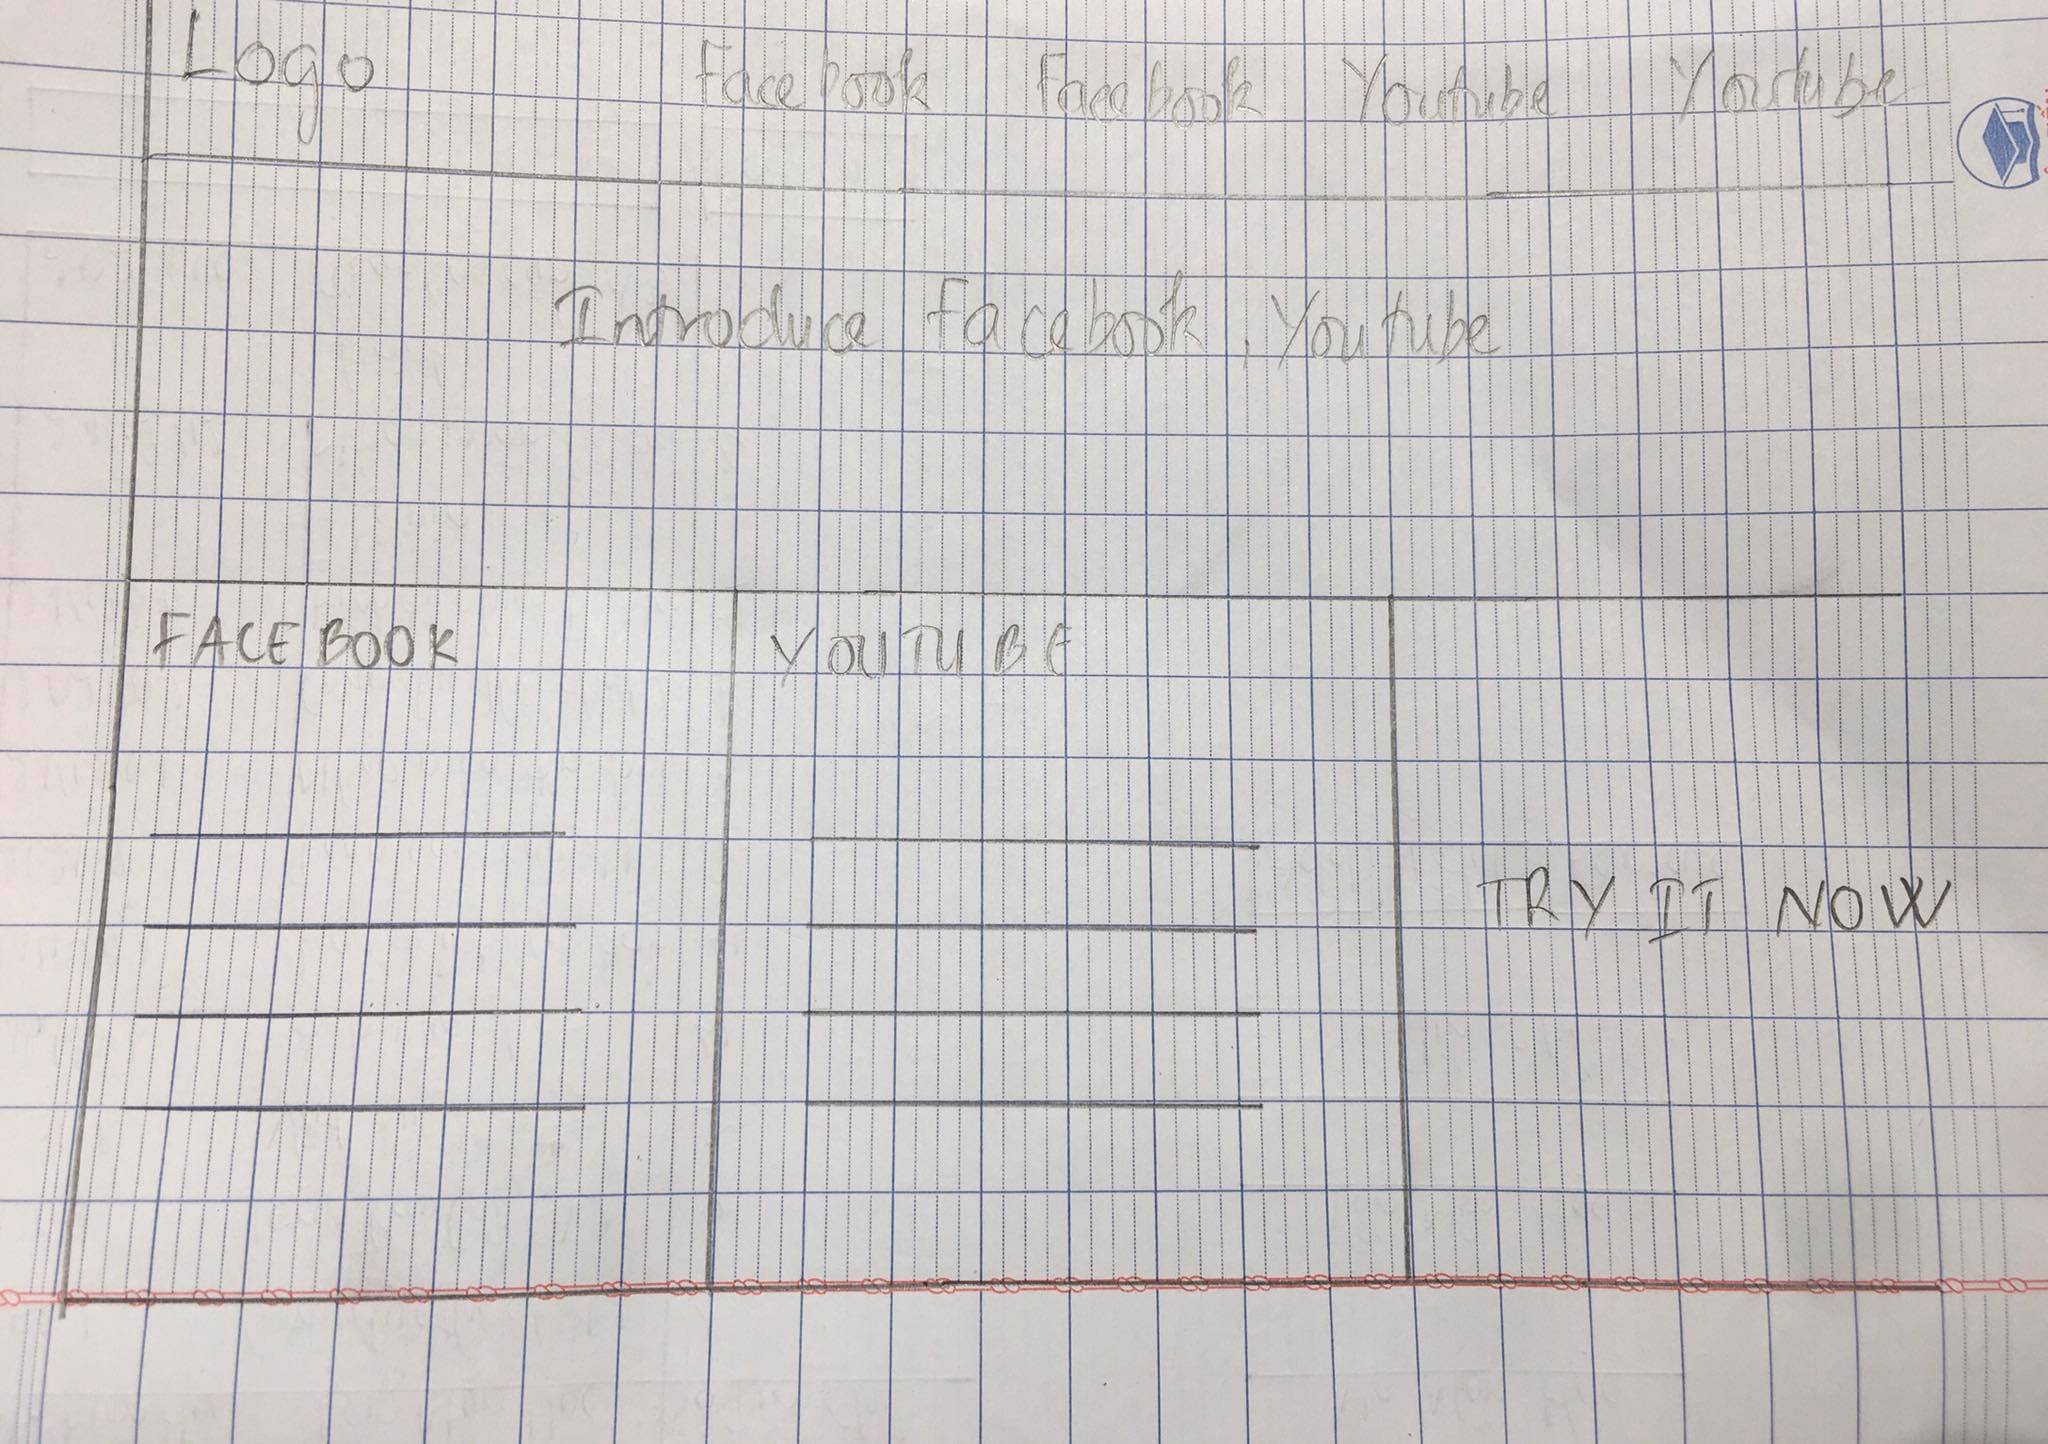 Logo Facebook Facebook Youtube Youtube
Introduce Facebook, Youtube
FACEBOOK YOUTUBE
TRY IT NOW